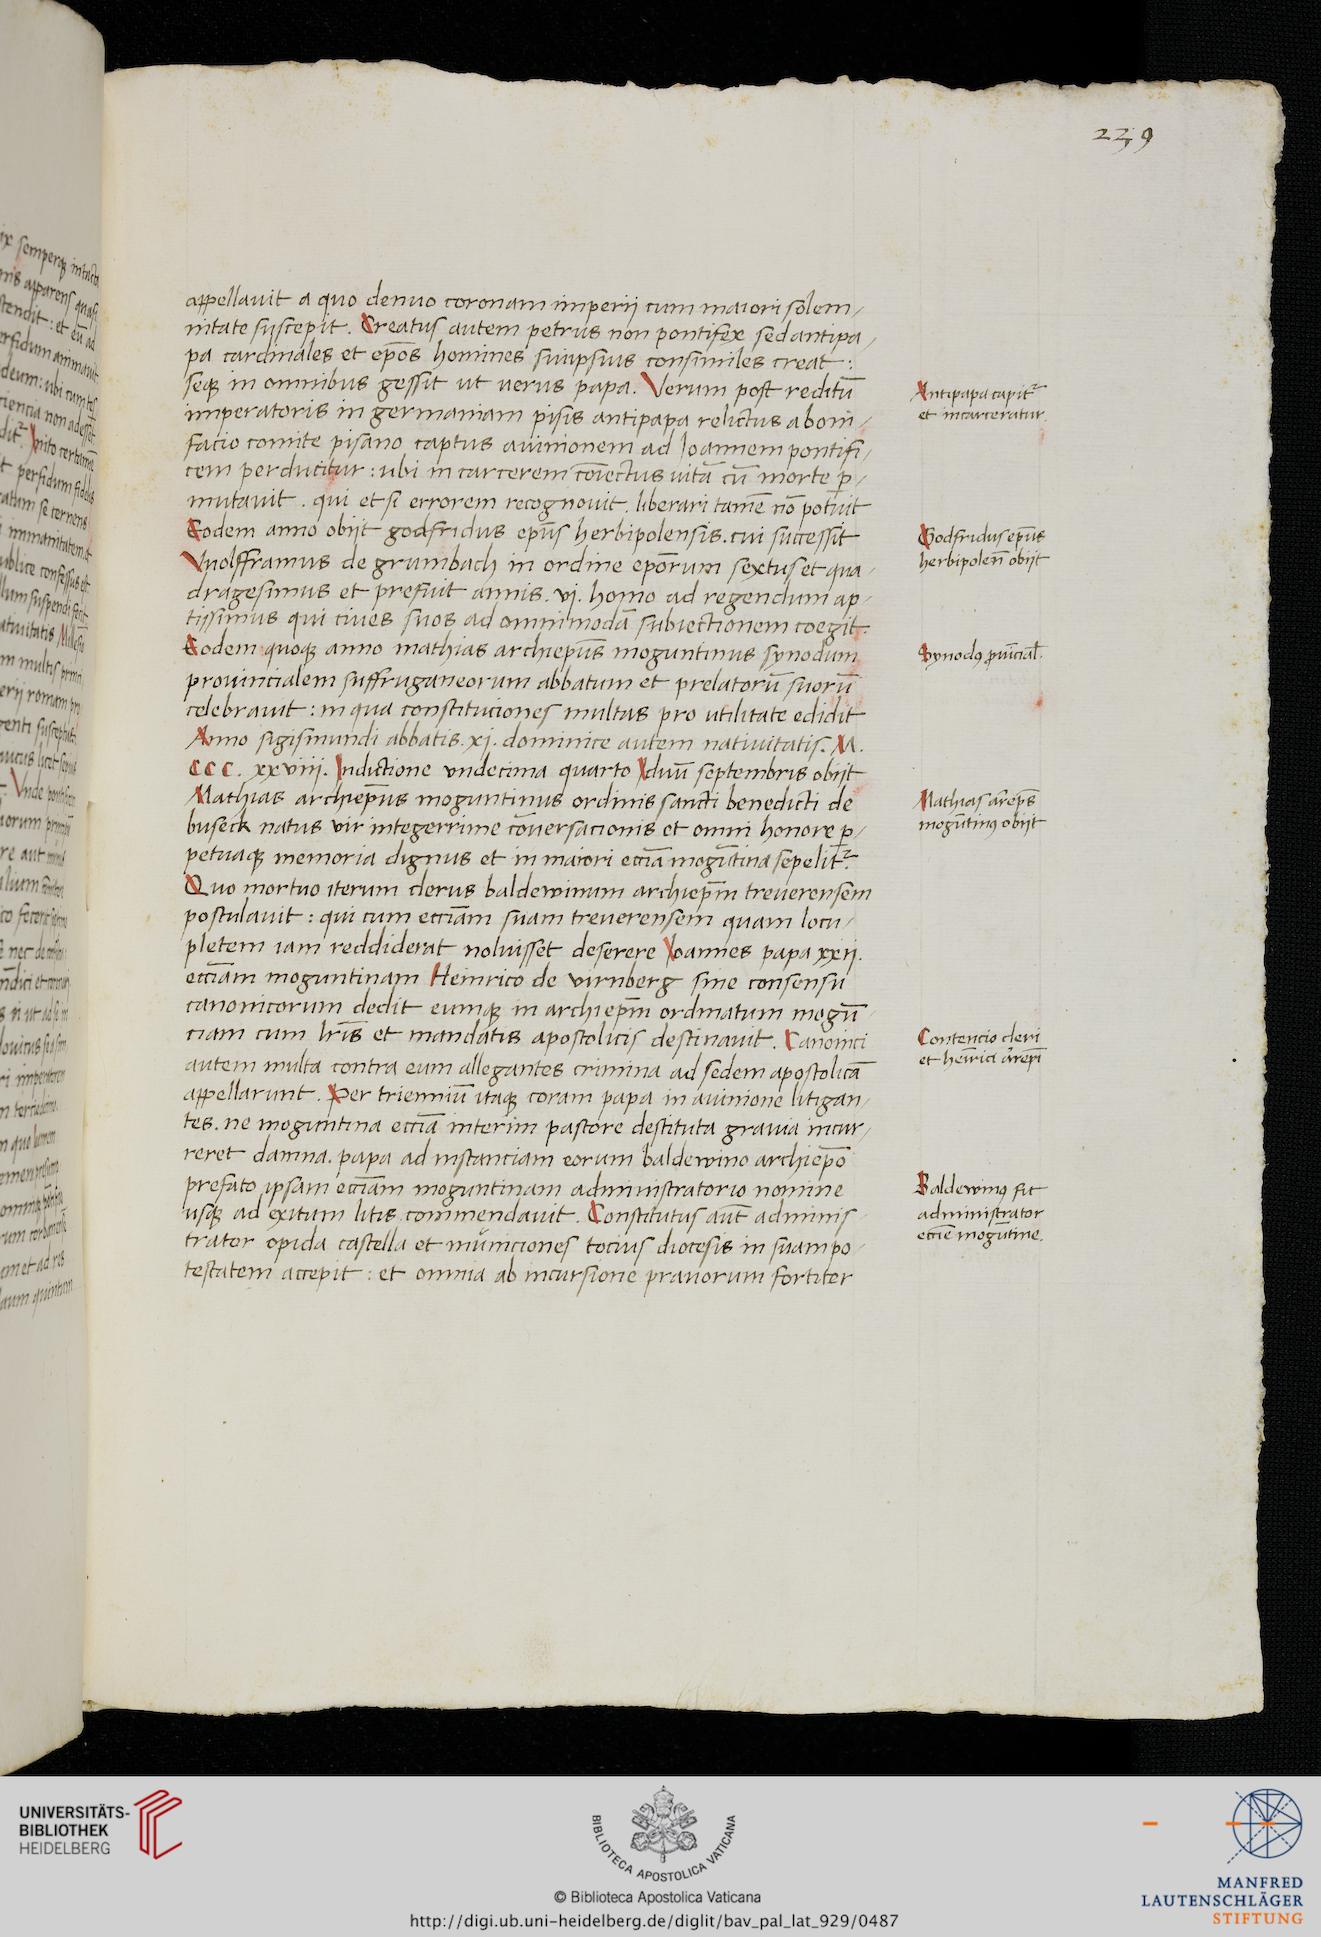 239
appellauit a quo denuo coronam imperij cum maiori solem-
nitate suscepit. Creatus autem petrus non pontifex sed antipa-
pa cardinales et ep̄os homines suiipsius consimiles creat:
seqꝫ in omnibus gessit ut uerus papa. Verum post reditū
imperatoris in germaniam pisis antipapa relictus a boni-
facio comite pisano captus auinionem ad Joannem pontifi-
cem perducitur: ubi in carcerem cōiectus uitā cū morte ꝑ-
mutauit. qui et si errorem recognouit. liberari tamē nō potuit
Eodem anno obijt godfridus ep̄us herbipolensis. cui successit
Vuolfframus de grumbach in ordine ep̄orum sextus et qua-
dragesimus et prefuit annis. vj. homo ad regendum ap-
tissimus qui ciues suos ad omnimodā subiectionem coegit.
Eodem quoqꝫ anno mathias archiep̄us moguntinus synodum
prouincialem suffraganeorum abbatum et prelatorū suorū
celebrauit: in qua constituciones multas pro utilitate edidit
Anno sigismundi abbatis. xj. dominice autem natiuitatis. M.
CCC. xxviij. Indictione vndecima quarto Iduū septembris obijt
Mathias archiep̄us moguntinus ordinis sancti benedicti de
buseck natus vir integerrime cōuersacionis et omni honore ꝑ-
petuaqꝫ memoria dignus et in maiori eccīa mogūtina sepelitᷣ.
Quo mortuo iterum clerus baldewinum archiep̄m treuerensem
postulauit: qui cum eccīam suam treuerensem quam locu-
pletem iam reddiderat noluisset deserere Joannes papa xxij.
eccīam moguntinam Heinrico de virnberg sine consensu
canonicorum dedit eumqꝫ in archiep̄m ordinatum mogū-
ciam cum lr̄is et mandatis apostolicis destinauit. Canonici
autem multa contra eum allegantes crimina ad sedem apostolicā
appellarunt. Per trienniū itaqꝫ coram papa in auinione litigan-
tes. ne moguntina eccīa interim pastore destituta grauia incur-
reret damna. papa ad instanciam eorum baldewino archiep̄o
prefato ipsam eccīam moguntinam administratorio nomine
usqꝫ ad exitum litis commendauit. Constitutus aūt adminis-
trator opida castella et municiones tocius diocesis in suam po-
testatem accepit: et omnia ab incursione prauorum fortiter
Antipapa capitᷣ
et incarceratur.
Godfridus ep̄us
herbipolen̄ obijt
Synodꝰ ꝓuīcial̄.
Mathias arēps̄
mogūtinꝰ obijt
Contencio cleri
et heīrici arēpī
Baldewinꝰ fit
administrator
eccīe mogūtine.
UNIVERSITÄTS-
BIBLIOTHEK
HEIDELBERG
BIBLIOTECA APOSTOLICA VATICANA
© Biblioteca Apostolica Vaticana
http://digi.ub.uni-heidelberg.de/diglit/bav_pal_lat_929/0487
MANFRED
LAUTENSCHLÄGER
STIFTUNG